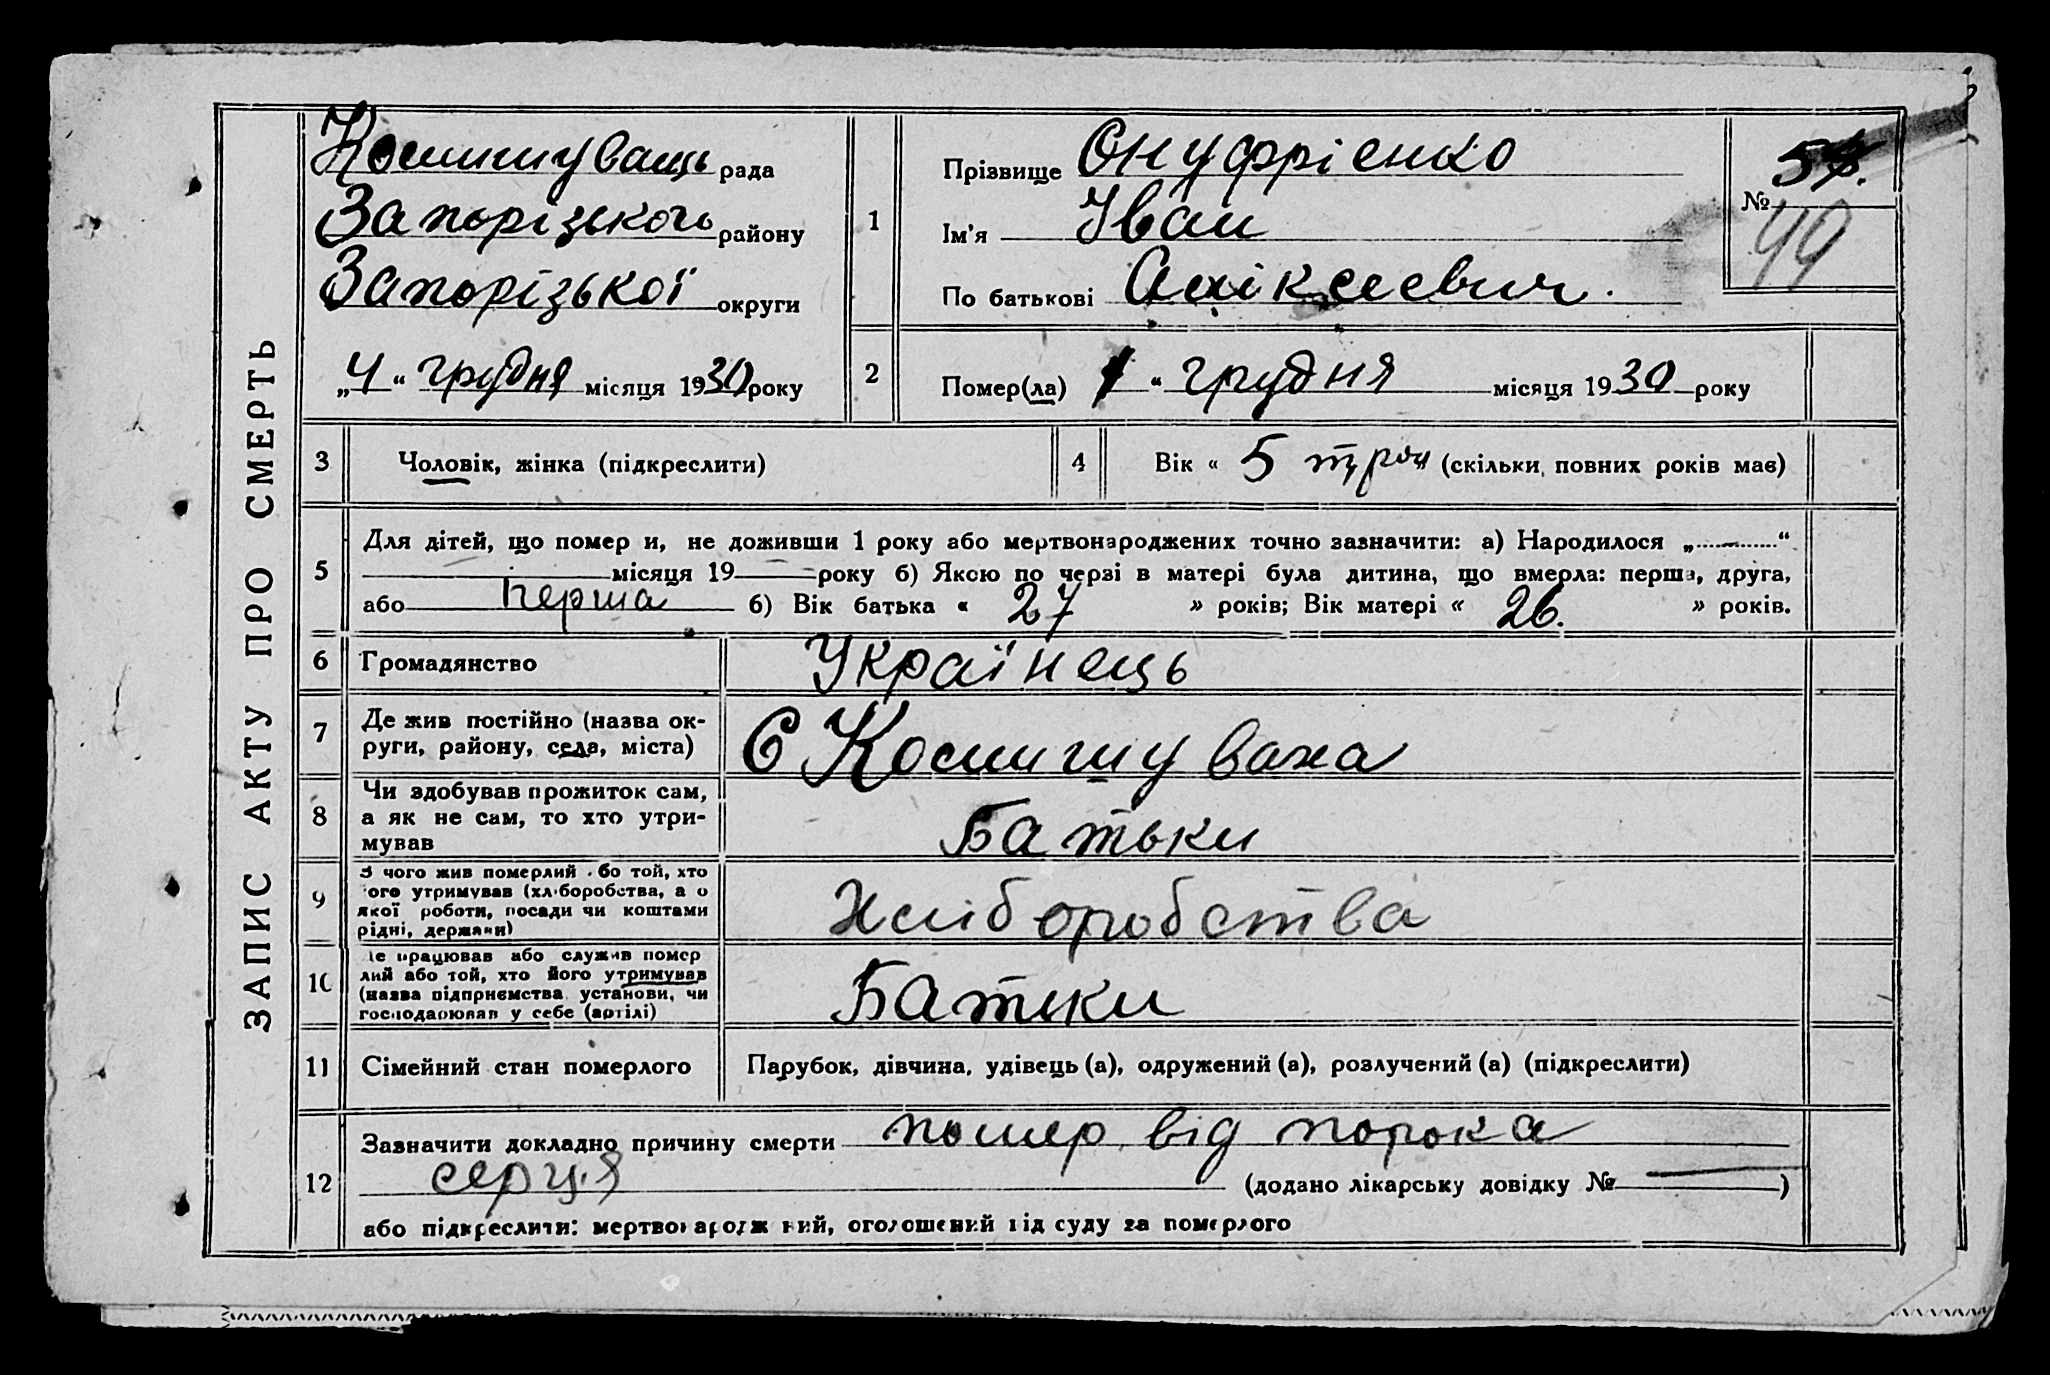 ЗАПИС АКТУ ПРО СМЕРТЬ
Комишуваць рада
Запорізького району
Запорізької округи
„4“ грудня місяця 1930 року
1
Прізвище Онуфрієнко
Ім'я Іван
По батькові
№ 49
2
Помер(ла) “ грудня місяця 1930 року
3
Чоловік, жінка (підкреслити)
4
Вік « 5 (скільки повних років має)
5
Для дітей, що помер и, не доживши 1 року або мертвонароджених точно зазначити: а) Народилося „ “
місяця 19 року б) Якою по черзі в матері була дитина, що вмерла: перша, друга,
або перша б) Вік батька « 27 » років; Вік матері « 26. » років.
6
Громадянство
Українець
7
Де жив постійно (назва ок-
руги, району, села, міста)
С Комишуваха
8
Чи здобував прожиток сам,
а як не сам, то хто утри-
мував
Батьки
9
З чого жив померлий бо той, хто
ого утримував (хліборобства, а о
якої роботи, посади чи коштами
рідні, держави)
Хліборобства
10
е працював або служив помер
лий або той, хто його утримував
(назва підприємства установи, чи
господарював у себе (артілі)
Батьки
11
Сімейний стан померлого
Парубок, дівчина, удівець (а), одружений (а), розлучений (а) (підкреслити)
12
Зазначити докладно причину смерти помер від порока
серця (додано лікарську довідку № )
або підкреслити: мертвонароджений, оголошений від суду за померлого